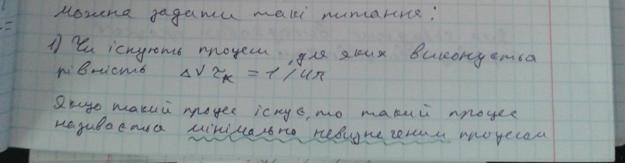 можна задати такі питання:
1) Чи існують процеси, для яких виконується
рівність Δν τₖ = 1/4π
Якщо такий процес існує, то такий процес
називається мінімально невизначеним процесом